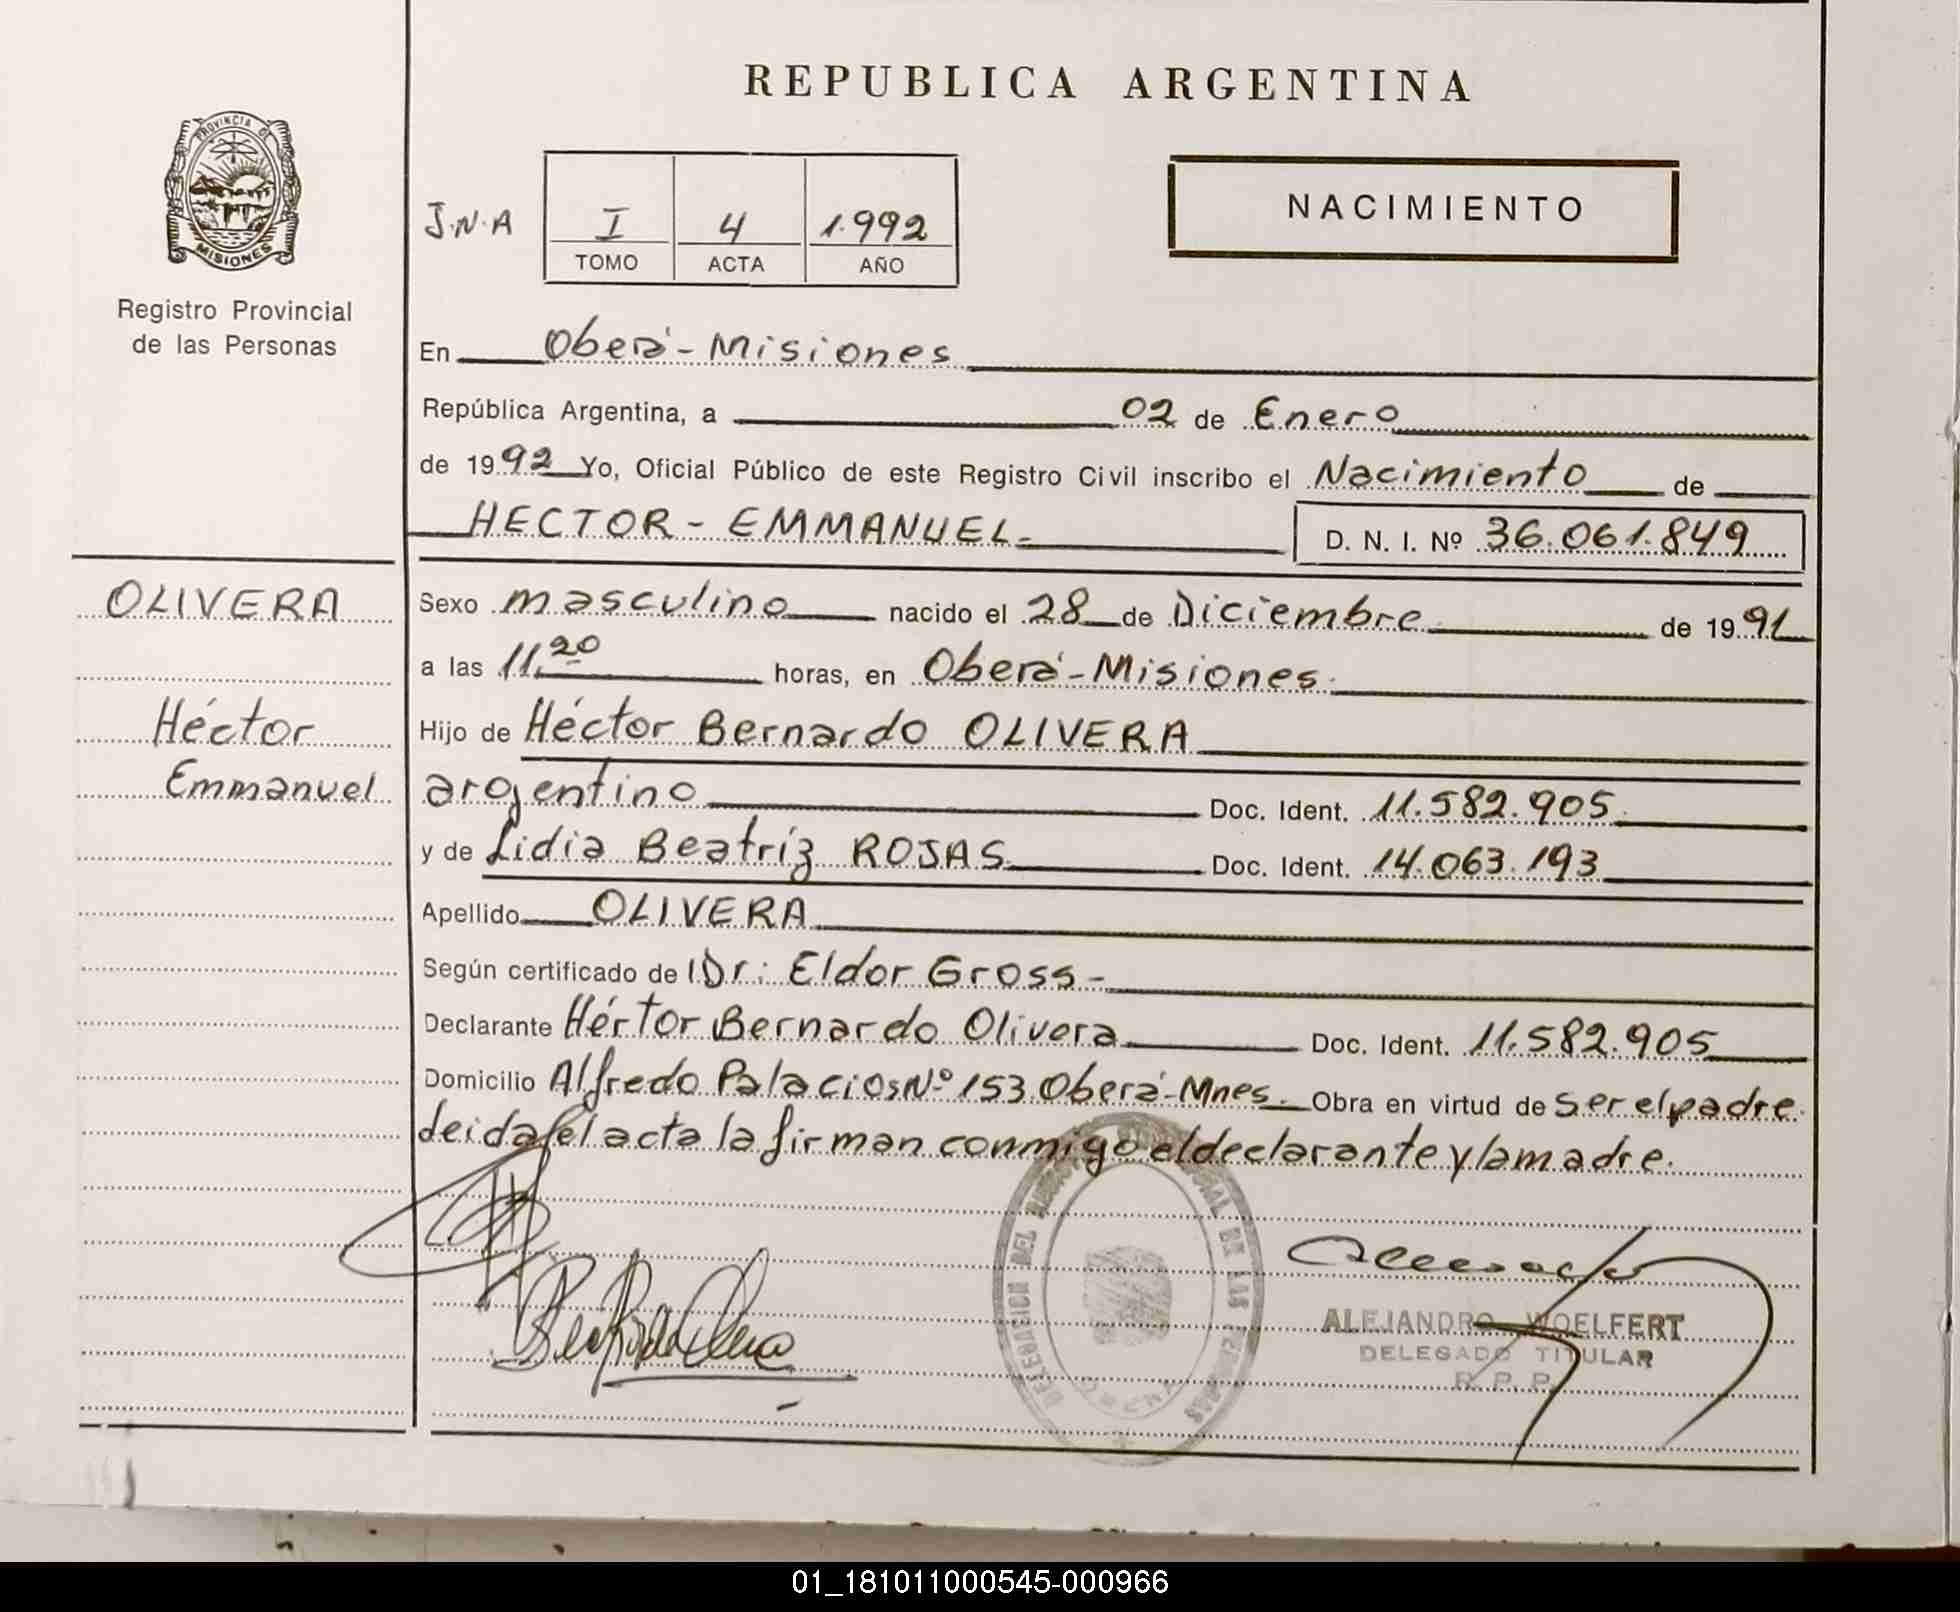 REPUBLICA ARGENTINA
PROVINCIA DE
MISIONES
Registro Provincial
de las Personas
NACIMIENTO
J.N.A
I 4 1.992
TOMO ACTA AÑO
En Oberá - Misiones
República Argentina, a 02 de Enero
de 1992 Yo, Oficial Público de este Registro Civil inscribo el Nacimiento de
HECTOR - EMMANUEL - D. N. I. Nº 36.061.849
OLIVERA
Héctor
Emmanuel
Sexo masculino nacido el 28 de Diciembre de 1991
a las 11.20 horas, en Oberá - Misiones.
Hijo de Héctor Bernardo OLIVERA
argentino Doc. Ident. 11.582.905.
y de Lidia Beatríz ROJAS Doc. Ident. 14.063.193
Apellido OLIVERA
Según certificado de Dr: Eldor Gross -
Declarante Héctor Bernardo Olivera Doc. Ident. 11.582.905
Domicilio Alfredo Palacios Nº 153 Oberá - Mnes. Obra en virtud de ser el padre.
leida el acta la firman conmigo el declarante y la madre.
DELEGACION DEL REGISTRO PROVINCIAL DE LAS PERSONAS
ALEJANDRO WOELFERT
DELEGADO TITULAR
R. P. P.
01_181011000545-000966